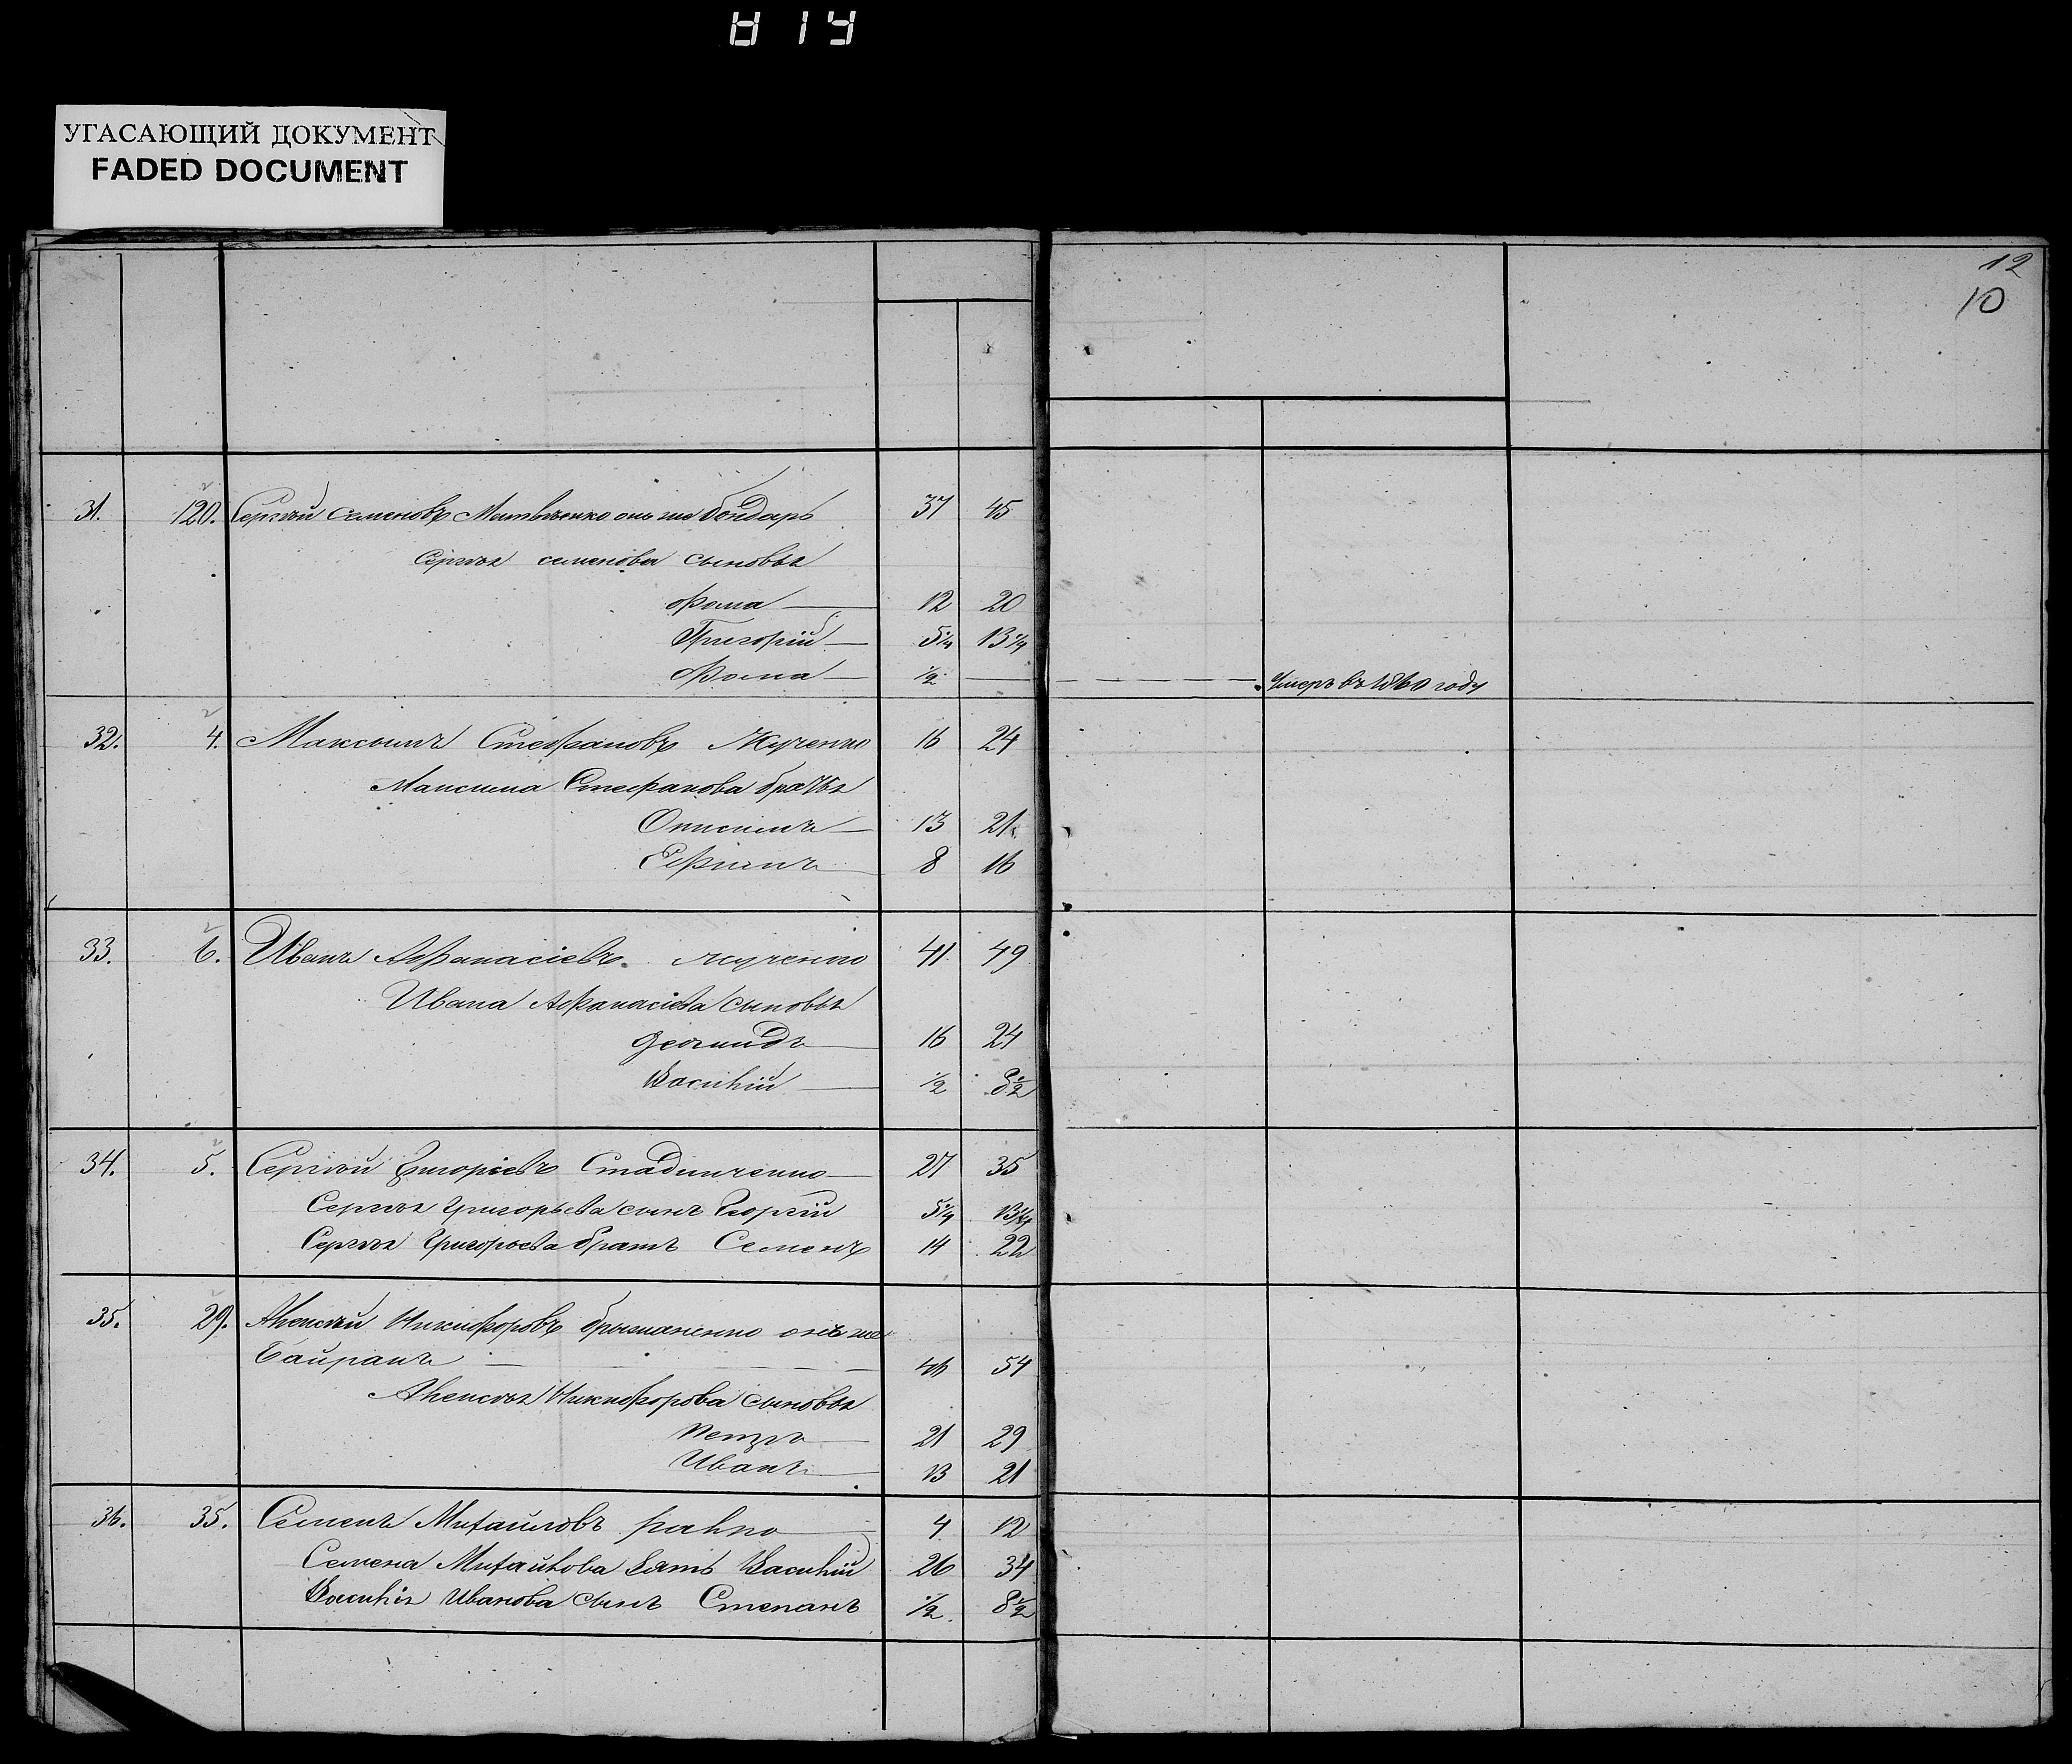 УГАСАЮЩИЙ ДОКУМЕНТ
FADED DOCUMENT
12
10
31. 120. Сергѣй Семеновъ Матвѣенко онъ же бондарь 37 45
Сергѣя семенова сыновья
Фома 12 20
Григорій 5¼ 13¼
Фома ½ Умеръ въ 1860 году
32. 4. Максимъ Стефановъ Жученко 16 24
Максима Стефанова братья
Онисимъ 13 21
Ефимъ 8 16
33. 6. Иванъ Афанасіевъ жученко 41 49
Ивана Афанасіева сыновья
16 24
Василій ½ 8½
34. 5. Сергѣй Григоріевъ Стадниченко 27 35
Сергѣя Григорьева сынъ Георгій 5¼ 13¼
Сергѣя Григорьева братъ Семенъ 14 22
35. 29. Алексѣй Никифоровъ онъ же
46 54
Алексѣя Никифорова сыновья
Петръ 21 29
Иванъ 13 21
36. 35. Семенъ Михайловъ 4 12
Семена Михайлова зять Василій 26 34
Василія Иванова сынъ Степанъ ½ 8½